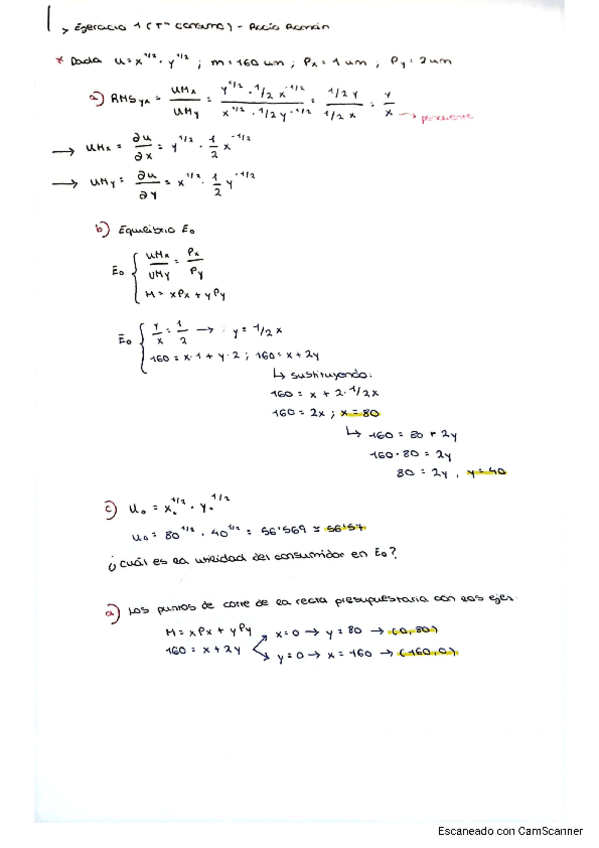 > Ejercicio 1 (Tª Consumo) - Rocío Román
* Dada u = x^1/2 · y^1/2 ; m = 160 um ; Px = 1 um ; Py = 2 um
a) RMS yx = UMx / UMy = y^1/2 · 1/2 x^-1/2 / x^1/2 · 1/2 y^-1/2 = 1/2 y / 1/2 x = y / x → pendiente
→ UMx = ∂u / ∂x = y^1/2 · 1/2 x^-1/2
→ UMy = ∂u / ∂y = x^1/2 · 1/2 y^-1/2
b) Equilibrio E₀
E₀ { UMx / UMy = Px / Py
M = xPx + yPy
E₀ { y/x = 1/2 → y = 1/2 x
160 = x · 1 + y · 2 ; 160 = x + 2y
↳ sustituyendo:
160 = x + 2 · 1/2x
160 = 2x ; x = 80
↳ 160 = 80 + 2y
160 - 80 = 2y
80 = 2y , y = 40
c) U₀ = x₀^1/2 · y₀^1/2
U₀ = 80^1/2 · 40^1/2 = 56'569 ≅ 56'57
¿cuál es la utilidad del consumidor en E₀?
d) Los puntos de corte de la recta presupuestaria con los ejes.
M = xPx + yPy
x = 0 → y = 80 → (0, 80)
160 = x + 2y
y = 0 → x = 160 → (160, 0)
Escaneado con CamScanner